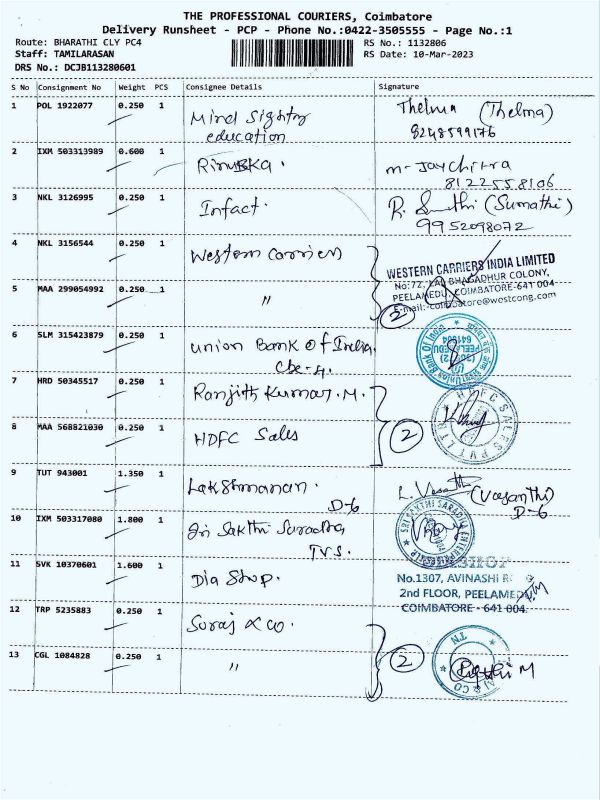 THE PROFESSIONAL COURIERS, Coimbatore
Delivery Runsheet - PCP - Phone No.:0422-3505555 - Page No.:1
Route: BHARATHI CLY PC4 RS No.: 1132806
Staff: TAMILARASAN RS Date: 10-Mar-2023
DRS No.: DCJB113280601
S No Consignment No Weight PCS Consignee Details Signature
1 POL 1922077 0.250 1 Mind Sightz Thelma (Thelma)
education 8248599176
2 IXM 503313989 0.600 1 m. Jaychitra
8122558106
3 NKL 3126995 0.250 1 Infact. R. (Sumathi)
9952098072
4 NKL 3156544 0.250 1 Western Carriers
WESTERN CARRIERS INDIA LIMITED
No:72, BHAGADHUR COLONY,
5 MAA 299054992 0.250 1 〃 PEELAMEDU, COIMBATORE-641 004
2 E-mail: coimbatore@westcong.com
6 SLM 315423879 0.250 1 Union Bank of India. Union Bank Of India
Cbe-4. PEELAMEDU 641004
7 HRD 50345517 0.250 1 Ranjith Kumar. M.
8 MAA 568821030 0.250 1 HDFC Sales 2 HDFC SALES PVT LTD
9 TUT 943001 1.350 1 Lakshmanan. L. Vasanthi (Vasanthi)
D-6 D-6
10 IXM 503317080 1.800 1 Sri Sakthi Saradha SRI SAKTHI SARADHA ENTERPRISES
TVS.
11 SVK 10370601 1.600 1 Dia Shop.
No.1307, AVINASHI
2nd FLOOR, PEELAMEDU,
COIMBATORE - 641 004.
12 TRP 5235883 0.250 1 Suraj & co.
13 CGL 1084828 0.250 1 〃 2 & CO TN